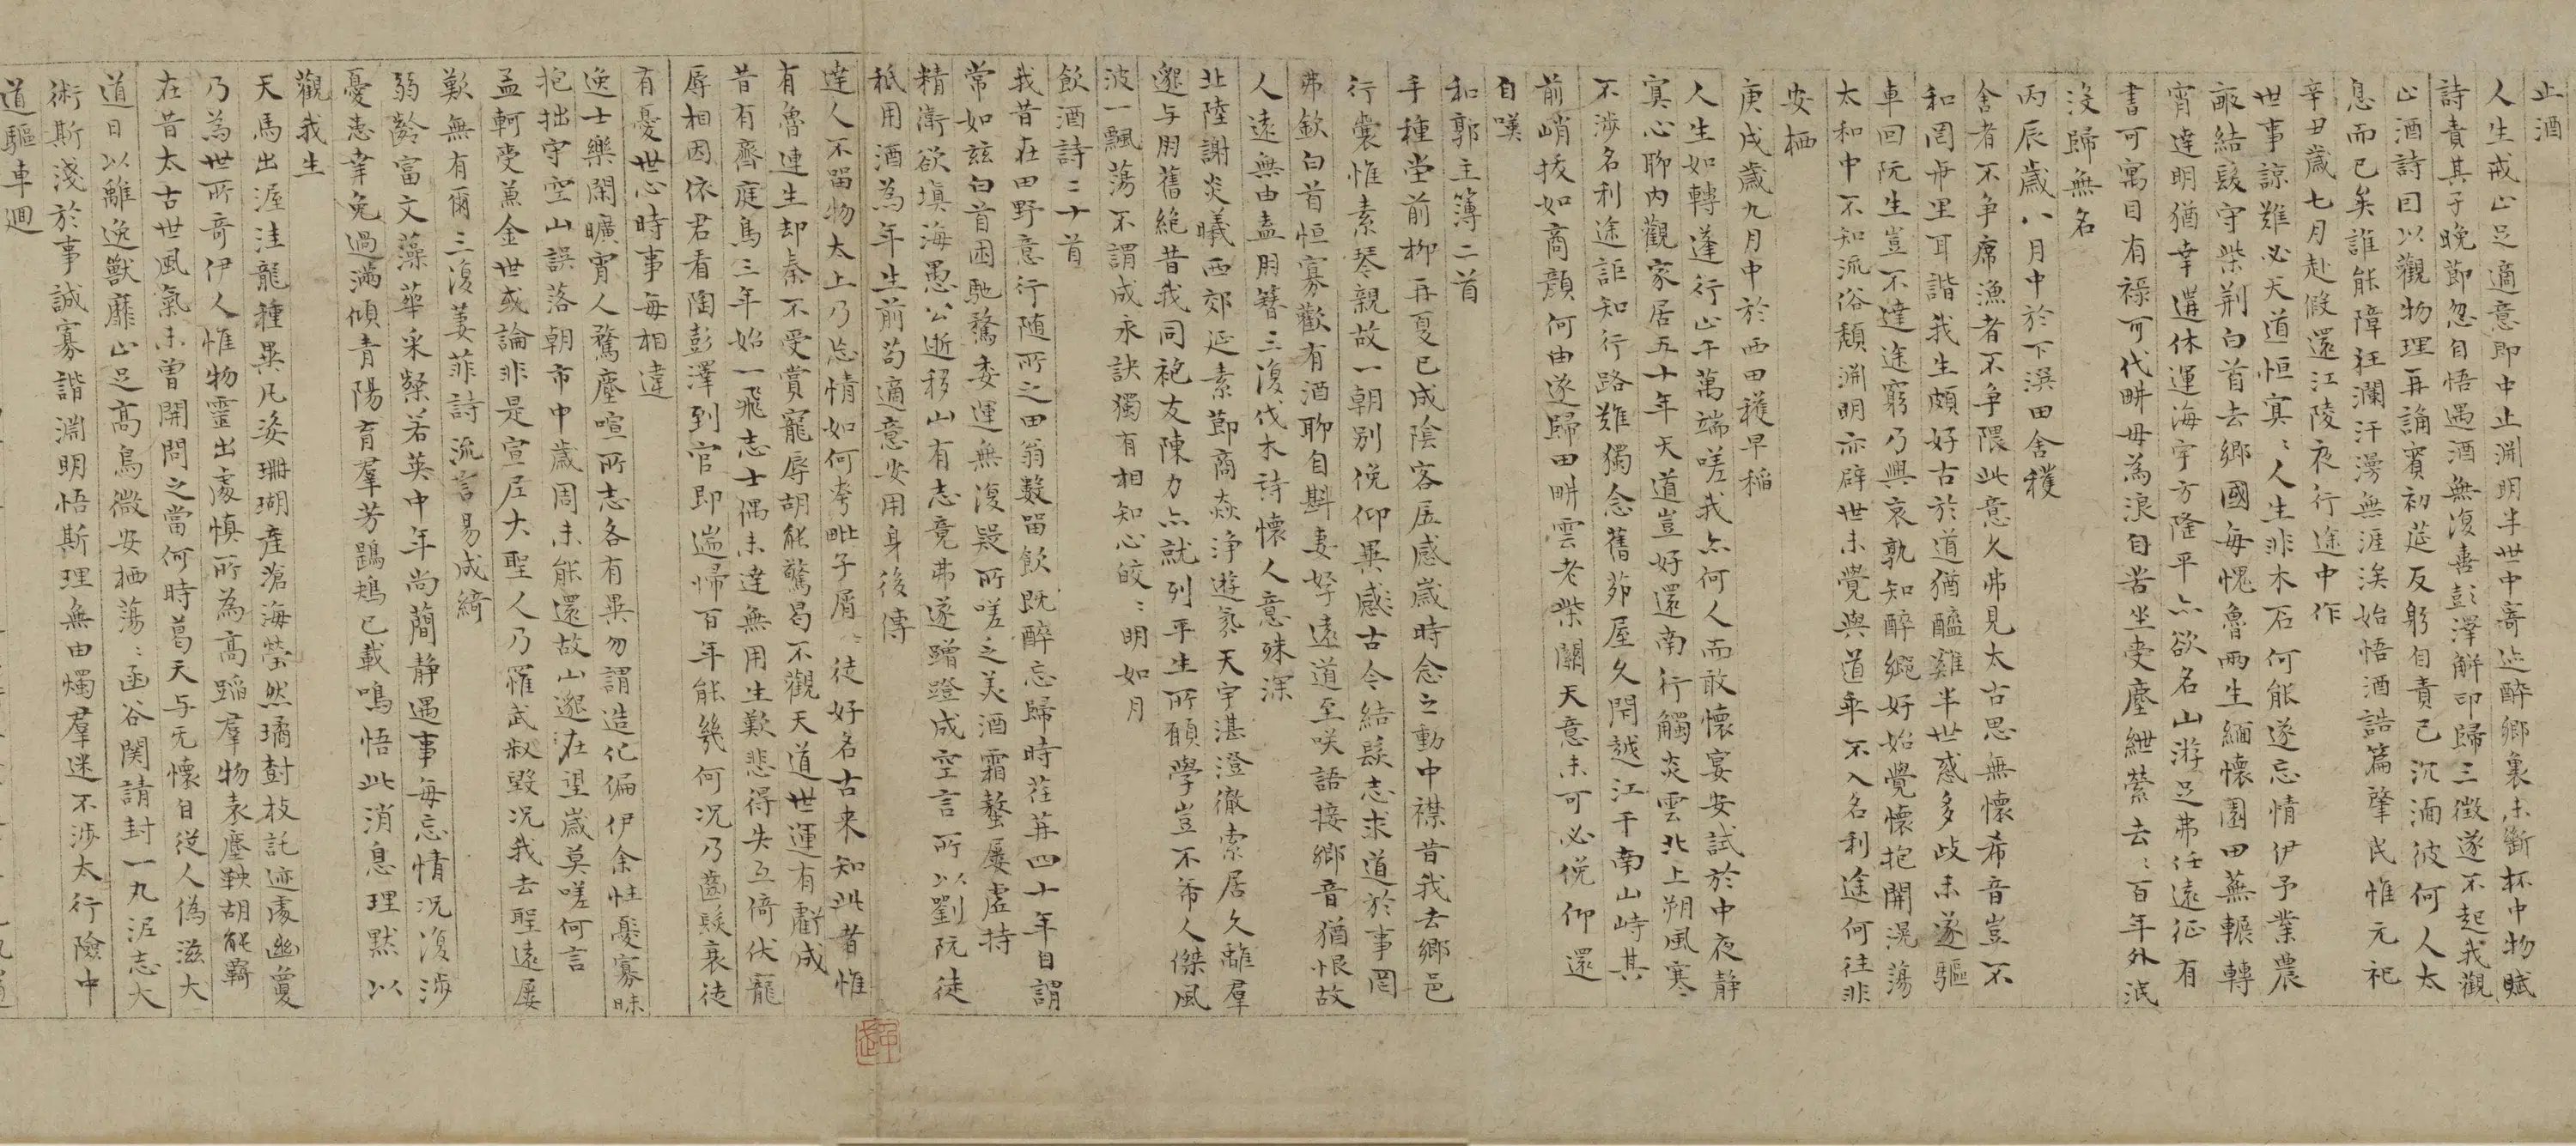 止酒
人生戒止足適意即中止淵明半世中寄迹醉鄉裏未斷杯中物賦
詩責其子晚節忽自悟遇酒無復喜彭澤解印歸三徵遂不起我觀
止酒詩因以觀物理再誦賓初莚反躬自責己沉湎彼何人太
息而已矣誰能障狂瀾汗漫無涯涘始悟酒誥篇肇民惟元祀
辛丑歲七月赴假還江陵夜行途中作
世事諒難必天道恒寞〻人生非木石何能遂忘情伊予業農
畝結髮守柴荆白首去鄉國每愧魯兩生緬懷園田蕪輾轉
宵達明猶幸遘休運海宇方隆平亦欲名山游足弗任遠征有
書可寓目有祿可代畊毋為浪自苦坐受塵紲縈去〻百年外泯
沒歸無名
丙辰歲八月中於下潠田舍穫
舍者不争席漁者不争隈此意久弗見太古思無懷希音豈不
和罔毋里耳諧我生頗好古於道猶醯雞半世惑多歧未遂驅
車回阮生豈不達途窮乃興哀孰知醉鄉好始覺懷抱開滉蕩
太和中不知流俗頹淵明亦辟世未覺與道乖不入名利途何往非
安栖
庚戌歲九月中於西田穫早稻
人生如轉蓬行止千萬端嗟我亦何人而敢懷宴安試於中夜静
寞心聊内觀家居五十年天道豈好還南行觸炎雲北上朔風寒
不涉名利途詎知行路難獨念舊茆屋久閇越江干南山峙其
前峭拔如商顔何由遂歸田畊雲老柴關天意未可必俛仰還
自嘆
和郭主簿二首
手種堂前柳再夏已成陰客居感歲時念之動中襟昔我去鄉邑
行橐惟素琴親故一朝别俛仰異感古今結髮志求道於事罔
弗欽白首恒寡歡有酒聊自斟妻孥遠道至咲語接鄉音猶恨故
人遠無由盍朋簪三復伐木詩懷人意殊深
北陸謝炎曦西郊延素節商猋浄遊氛天宇湛澄徹索居久離羣
邈与朋舊絶昔我同袍友陳力亦就列平生所願學豈不希人傑風
波一飄蕩不謂成永訣獨有相知心皎〻明如月
飲酒詩二十首
我昔在田野意行随所之田翁数留飲既醉忘歸時荏苒四十年自謂
常如玆白首困馳騖委運無復疑所嗟乏美酒霜螯屡虚持
精衛欲塡海愚公逝移山有志竟弗遂蹭蹬成空言所以劉阮徒
秖用酒為年生前苟適意安用身後傳
達人不留物太上乃忘情如何夸毗子屑〻徒好名古来知此者惟
有魯連生却秦不受賞寵辱胡能驚曷不觀天道世運有虧成
昔有齊庭鳥三年始一飛志士偶未達無用生歎悲得失互倚伏寵
辱相因依君看陶彭澤到官即耑歸百年能幾何况乃齒髮衰徒
有憂世心時事每相違
逸士樂閑曠宵人騖塵喧所志各有異勿謂造化偏伊余性憂寡昧
抱拙守空山誤落朝市中歲周未能還故山邈在望歲莫嗟何言
孟軻受蒹金世或論非是宣尼大聖人乃罹武叔毀况我去聖遠屡
歎無有爾三復萋菲詩流言易成綺
弱齡富文藻華采粲若英中年尚蕳静遇事每忘情况復涉
憂恚幸免過滿傾青陽育羣芳鶗鴂已載鳴悟此消息理黙以
觀我生
天馬出渥洼龍種異凡姿珊瑚產滄海瑩然璚樹枝託迹處幽夐
乃為世所奇伊人惟物靈出處慎所為高蹈羣物表塵鞅胡能羇
在昔太古世風氣未曾開問之當何時葛天与无懷自從人偽滋大
道日以離逸獸靡止足高鳥微安栖蕩〻函谷関請封一丸泥志大
術斯淺於事誠寡諧淵明悟斯理無由燭羣迷不涉太行險中
道驅車迴